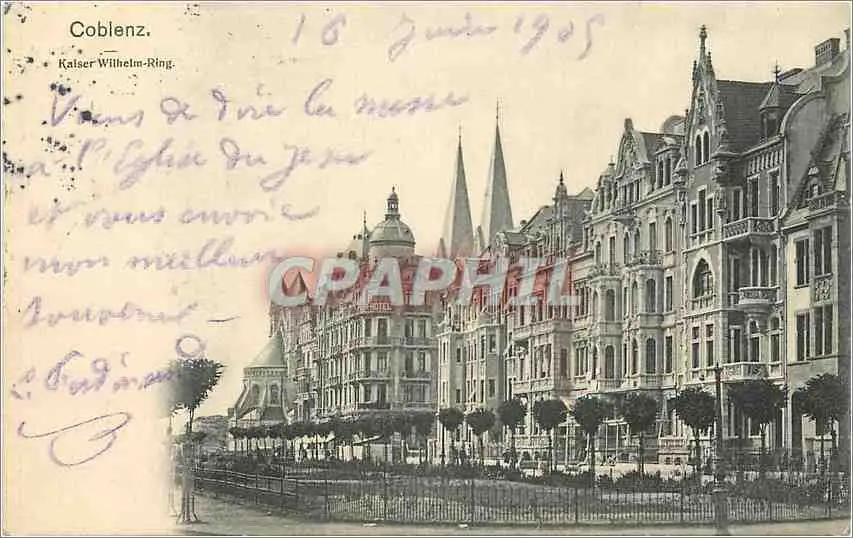 Coblenz.
Kaiser Wilhelm-Ring.
16 Juin 1905
Viens de dire la messe
a l'Eglise du Jesu
et vous envoie
mon meilleur
souvenir
HOTEL
CARAPHIL